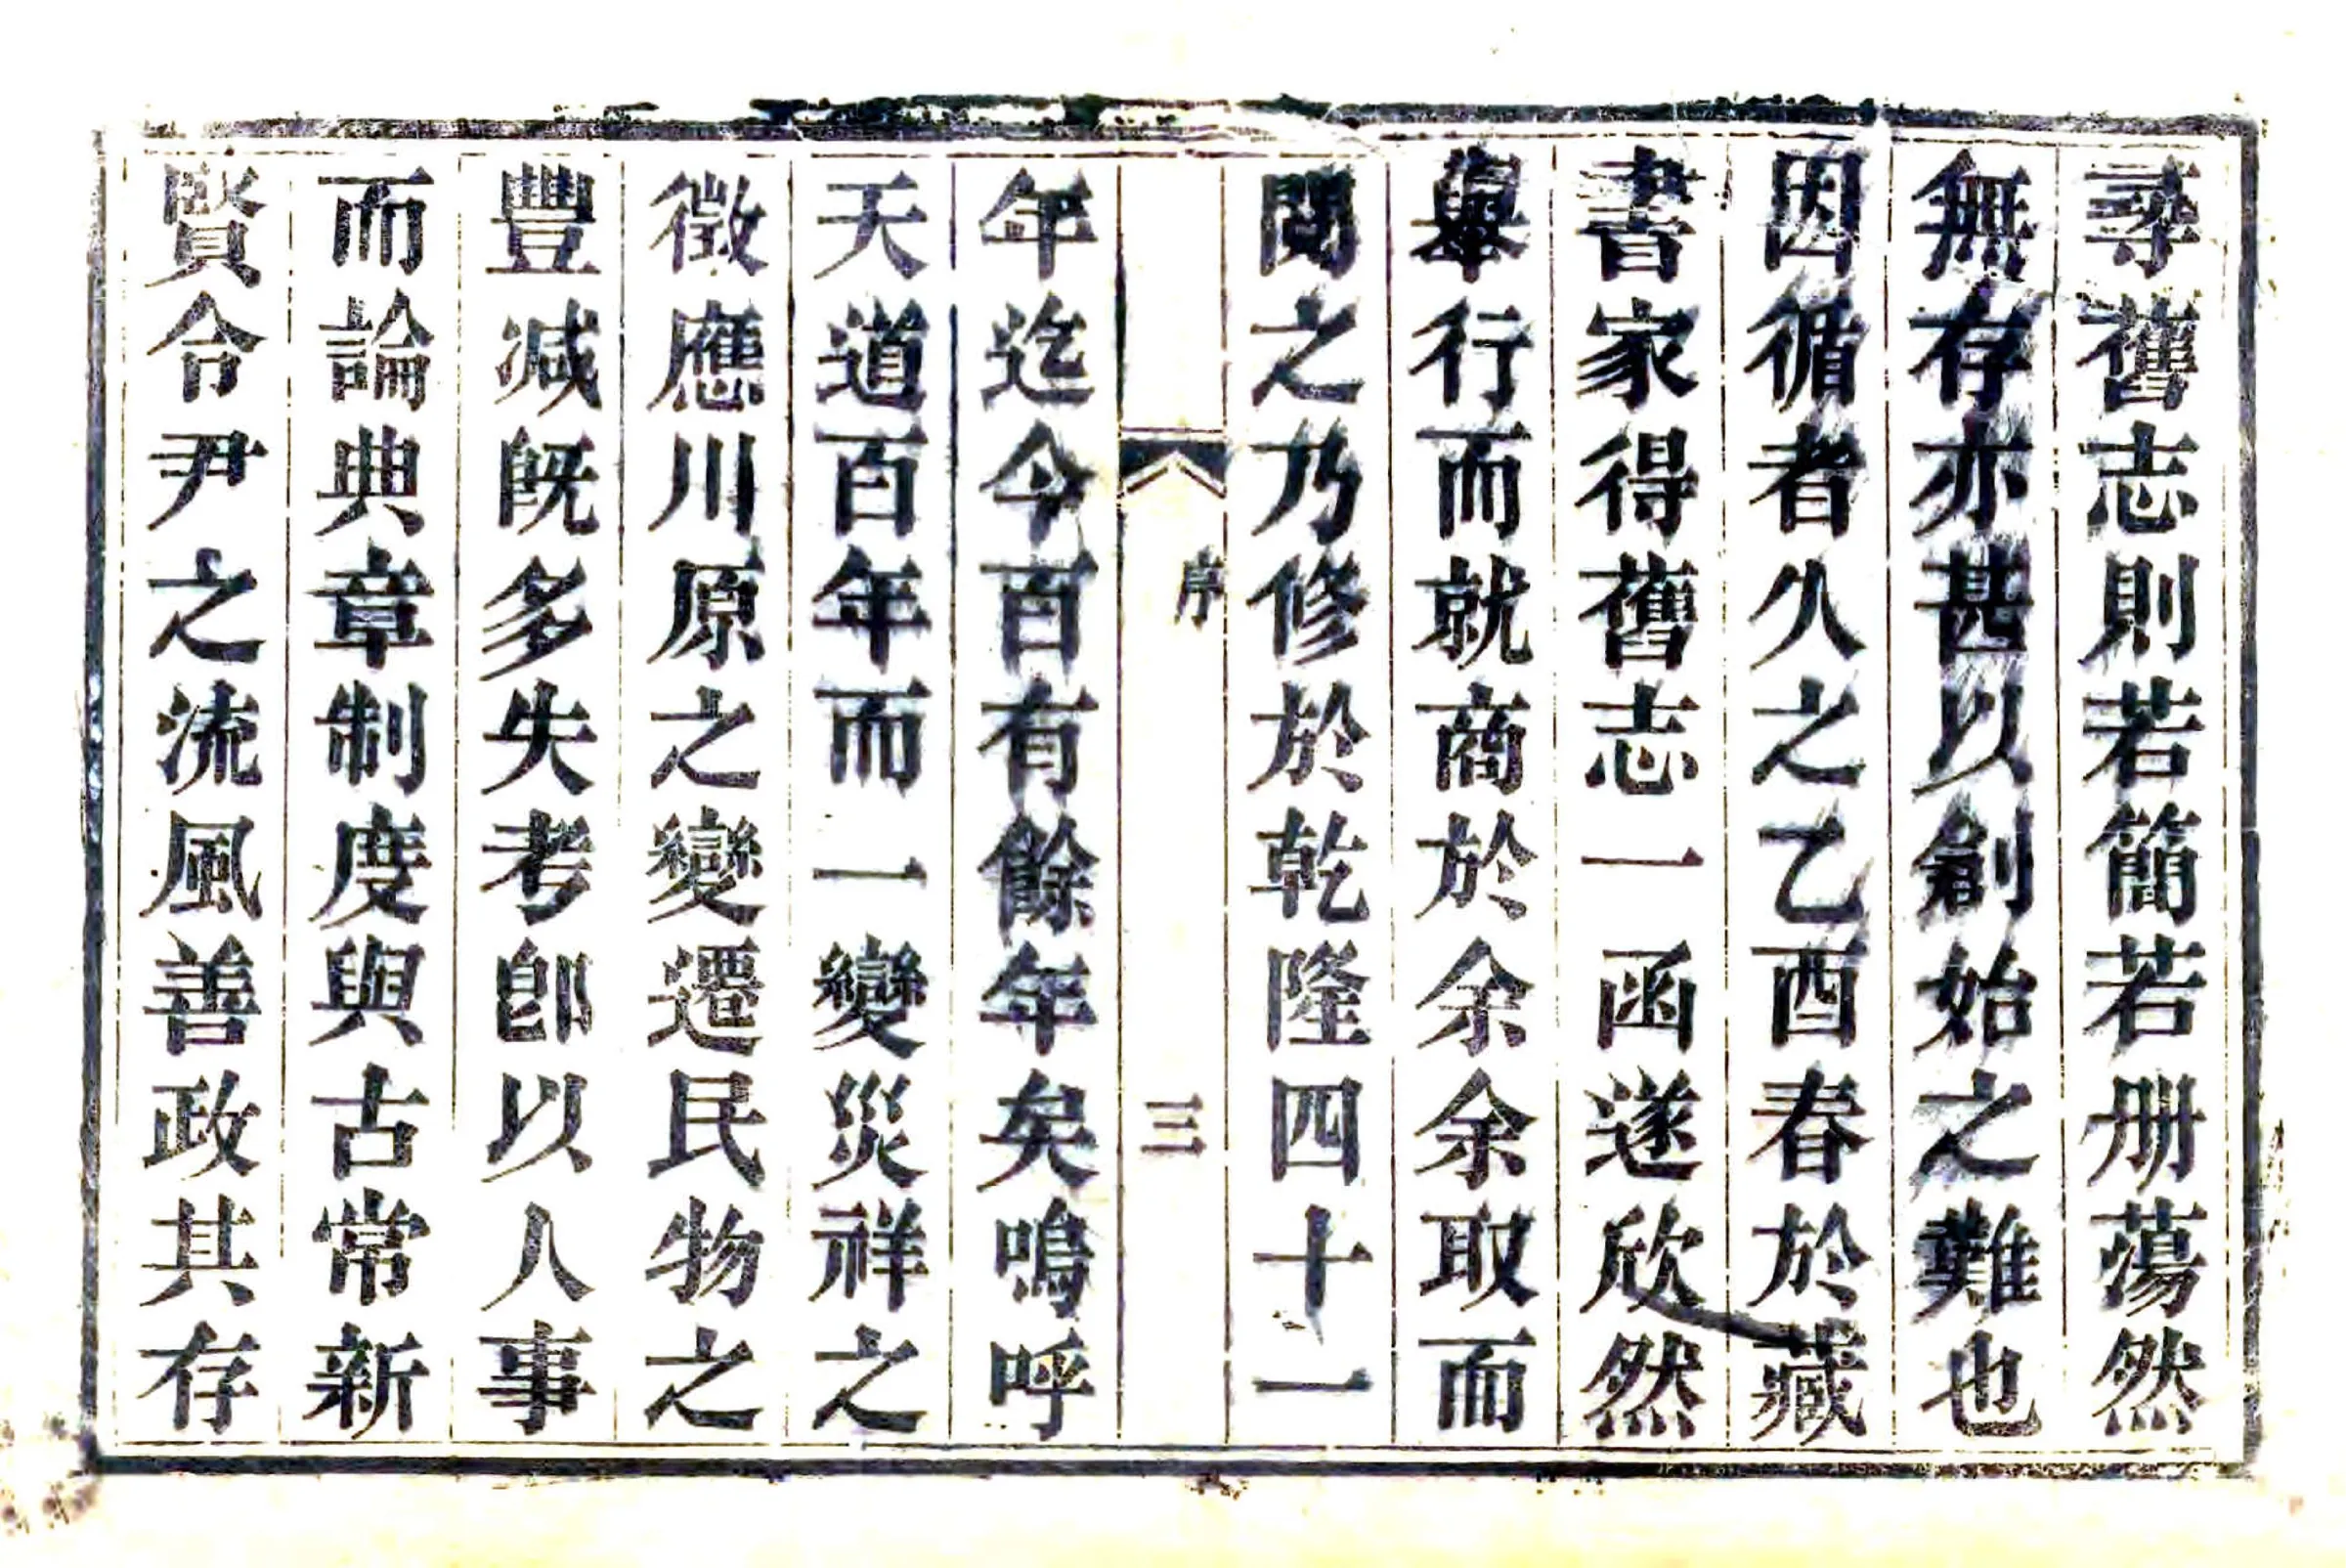 尋舊志則若簡若册蕩然
無存亦甚以創始之難也
因循者久之乙酉春於藏
書家得舊志一函遂欣然
舉行而就商於余余取而
閱之乃修於乾隆四十一
序
三
年迄今百有餘年矣嗚呼
天道百年而一變災祥之
徵應川原之變遷民物之
豐减旣多失考卽以人事
而論典章制度與古常新
賢令尹之流風善政其存